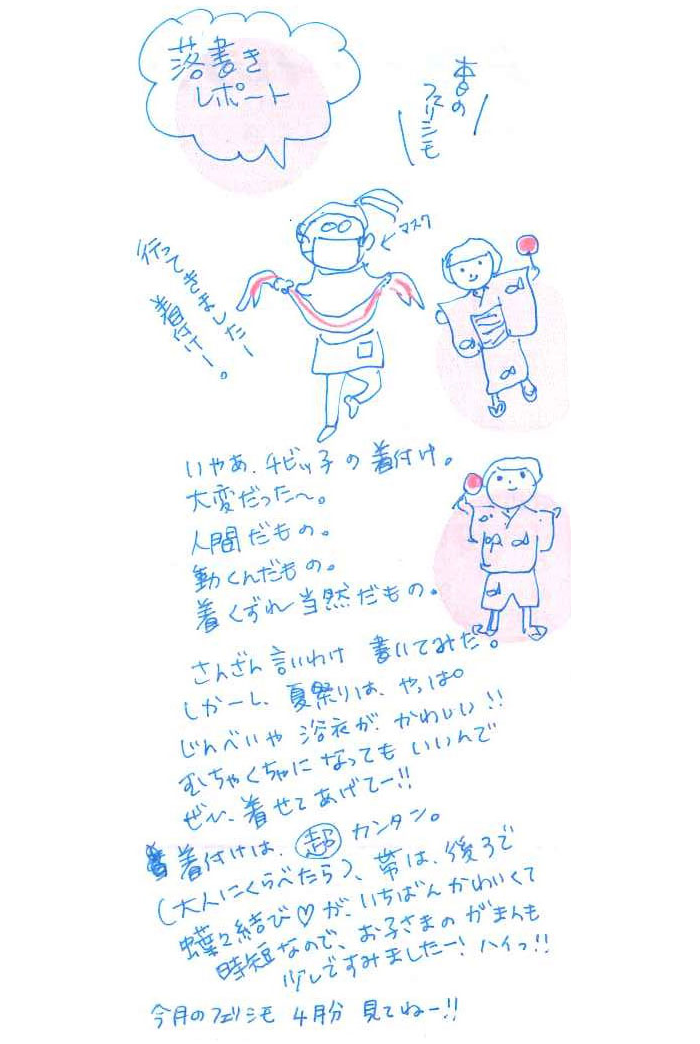 落書き
レポート
春の
フェリシモ
マスク
行ってきましたー
着付けー。
いやあ、チビッ子の着付け。
大変だった〜。
人間だもの。
動くんだもの。
着くずれ当然だもの。
さんざん言いわけ 書いてみた。
しかーし、夏祭りは、やっぱ。
じんべいや 浴衣が かわいい!!
むちゃくちゃに なっても いいんで
ぜひ、着せて あげてー!!
着付けは、超カンタン。
(大人にくらべたら)、帯は、後ろで
蝶々結び♡が、いちばんかわいくて
時短なので、お子さまのがまんも
少しですみましたー! ハイっ!!
今月のフェリシモ 4月分 見てねー!!